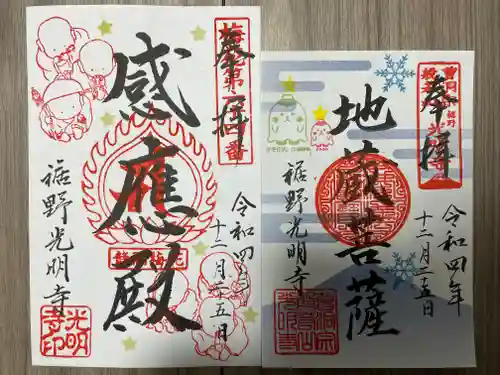 奉拝
感應殿
裾野光明寺
令和四年
十二月二十五日
光明
寺印
奉拝
地蔵菩薩
裾野光明寺
令和四年
十二月二十五日